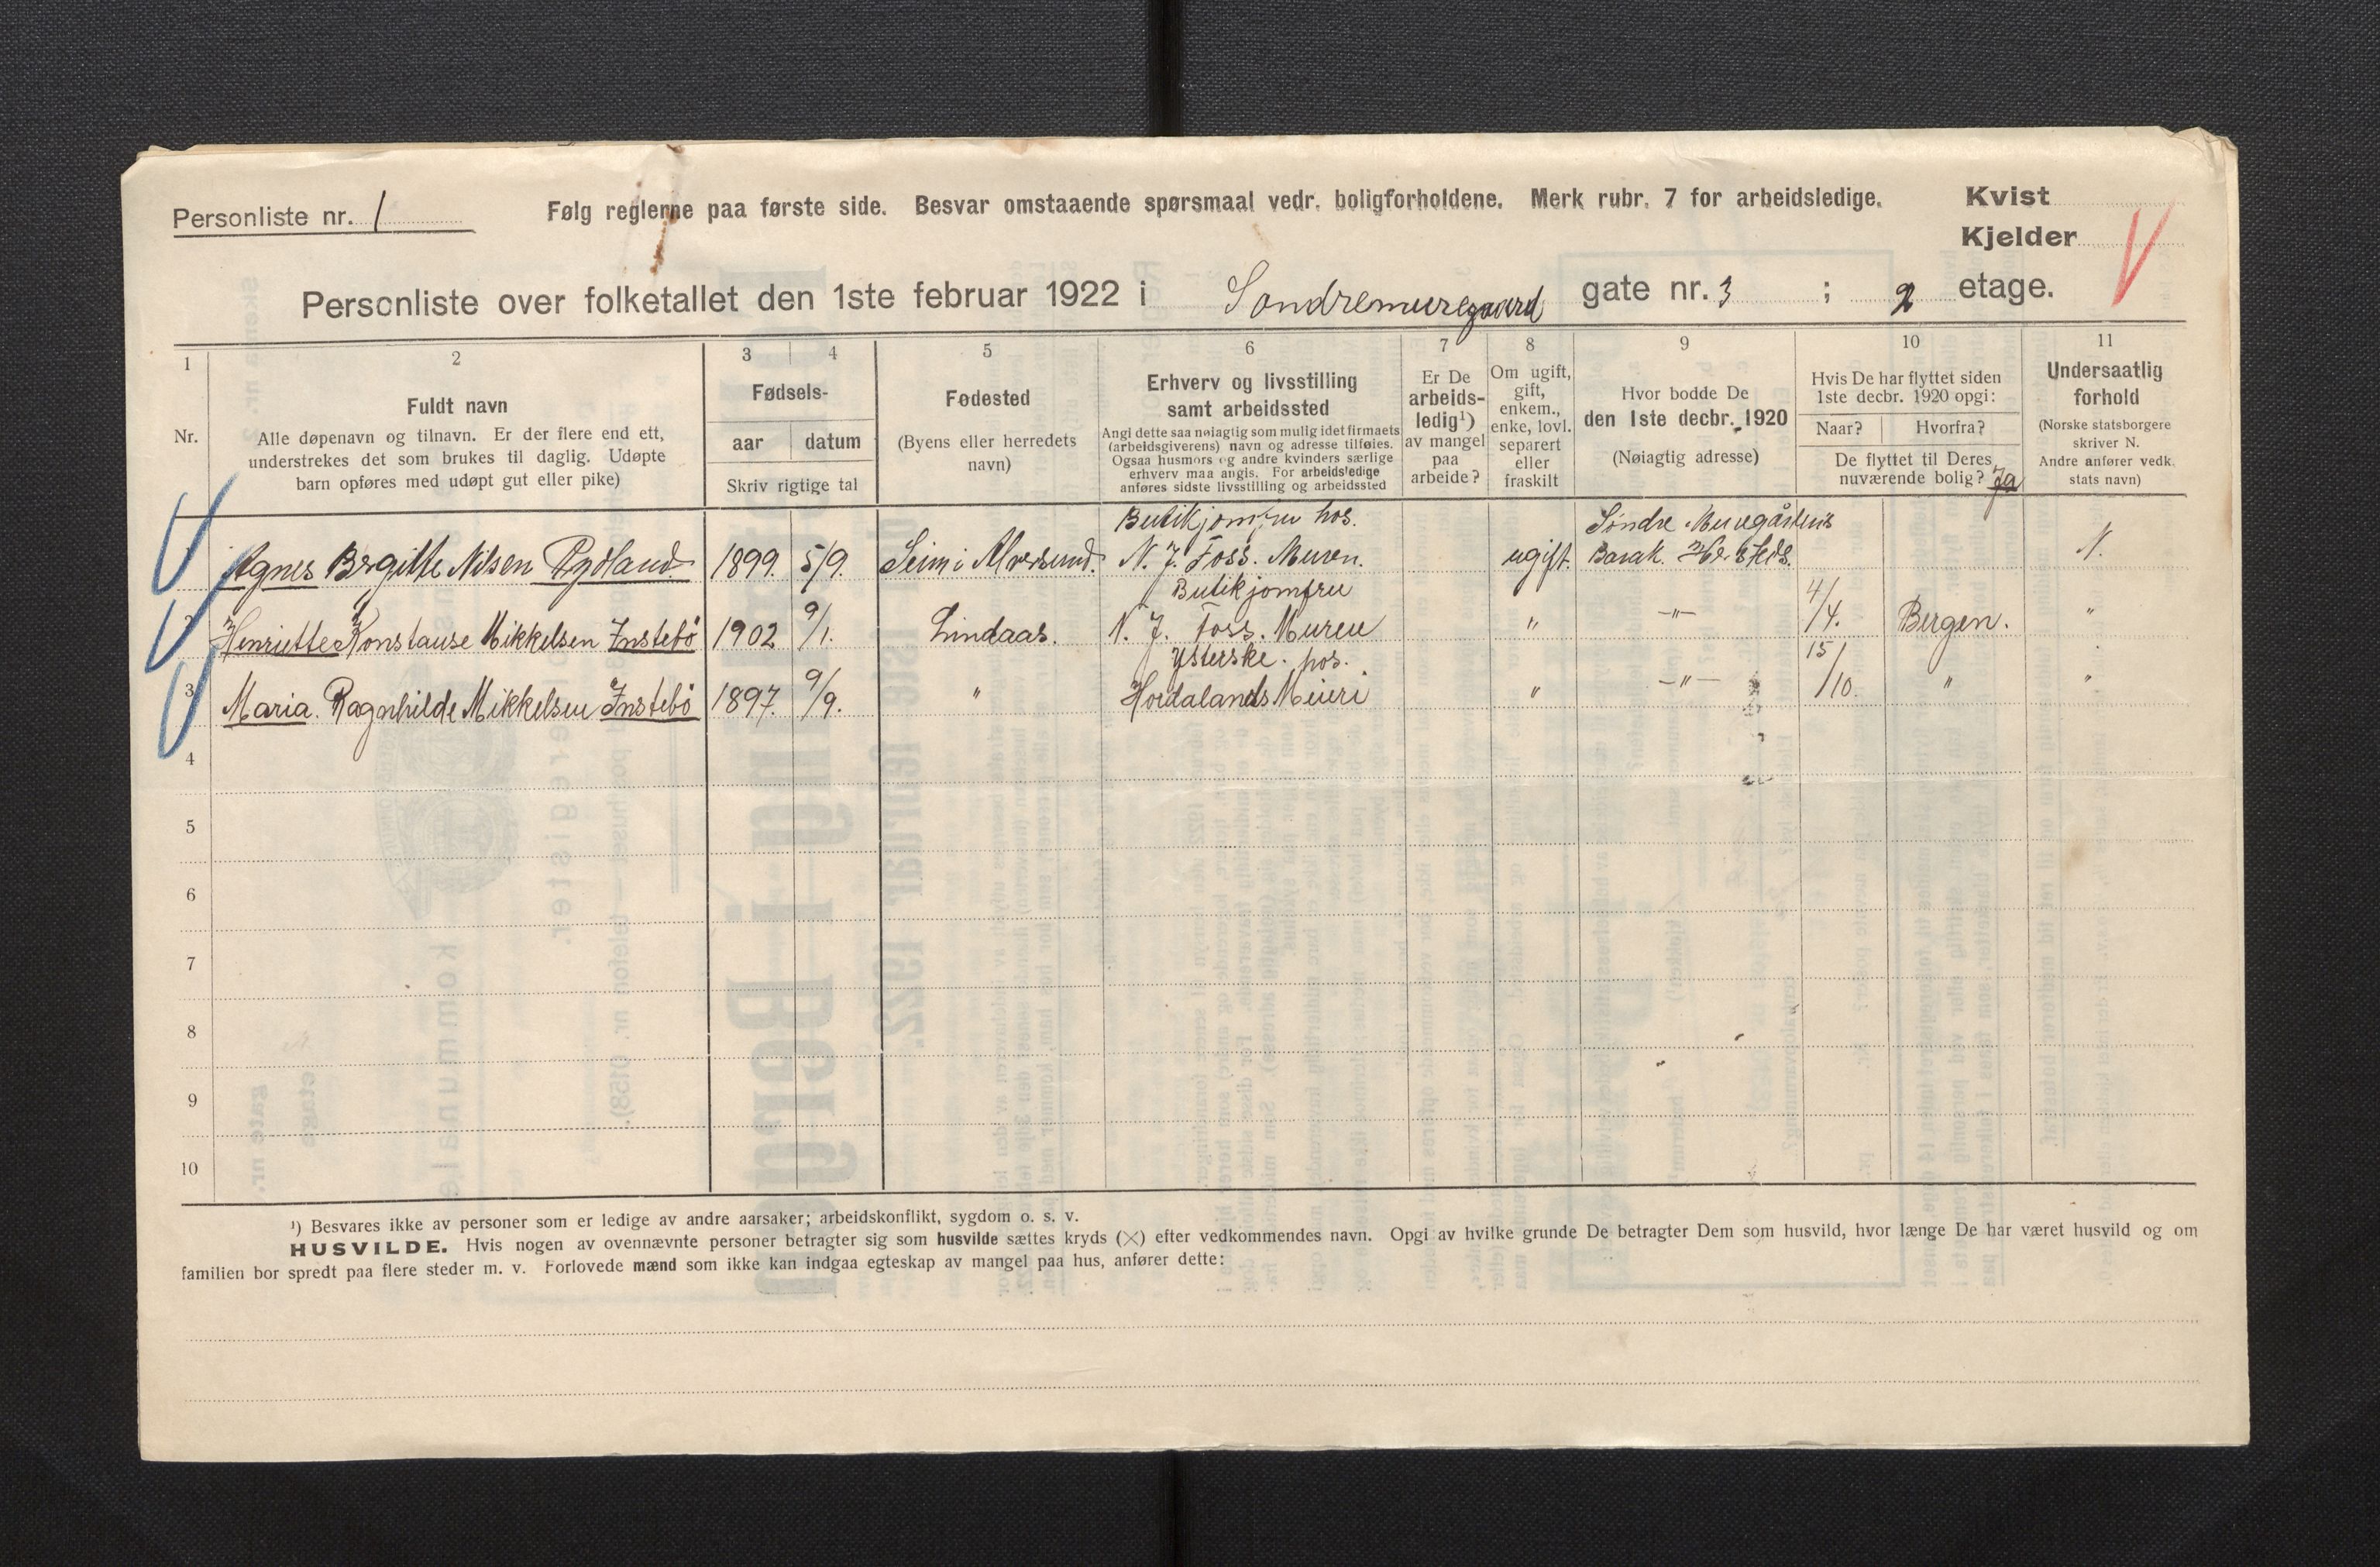 Personliste nr. 1
Følg reglerne paa første side. Besvar omstaaende spørsmaal vedr. boligforholdene. Merk rubr. 7 for arbeidsledige.
Kvist
Kjelder
Personliste over folketallet den 1ste februar 1922 i Søndremuregaard gate nr. 3 ; 2 etage.
1
2
3
4
5
6
7
8
9
10
11
Nr.
Fuldt navn
Alle døpenavn og tilnavn. Er der flere end ett,
understrekes det som brukes til daglig. Udøpte
barn opføres med udøpt gut eller pike)
Fødsels-
aar
datum
Skriv rigtige tal
Fødested
(Byens eller herredets
navn)
Erhverv og livsstilling
samt arbeidssted
Angi dette saa nøiagtig som mulig idet firmaets
(arbeidsgiverens) navn og adresse tilføies.
Ogsaa husmors og andre kvinders særlige
erhverv maa angis. For arbeidsledige
anføres sidste livsstilling og arbeidssted
Er De
arbeids-
ledig¹)
av mangel
paa
arbeide?
Om ugift,
gift,
enkem.,
enke, lovl.
separert
eller
fraskilt
Hvor bodde De
den 1ste decbr. 1920
(Nøiagtig adresse)
Hvis De har flyttet siden
1ste decbr. 1920 opgi:
Naar?
Hvorfra?
De flyttet til Deres
nuværende bolig? Ja
Undersaatlig
forhold
(Norske statsborgere
skriver N.
Andre anfører vedk.
stats navn)
Butikjomfru hos.
Agnes Bergitte Nilsen Rydland. 1899. 5/9. Seim i Alversund. N. J. Foss. Muren. ugift. N.
Butikjomfru
Henriette Konstanse Mikkelsen Instebö 1902 9/1. Lindaas. N. J. Foss. Muren " —"— 4/4. Bergen. "
Ysterske. hos.
3 Maria. Ragnhilde Mikkelsen Instebö 1897. 9/9. " Hordalands Meieri " —"— 15/10. " "
4
5
6
7
8
9
10
¹) Besvares ikke av personer som er ledige av andre aarsaker; arbeidskonflikt, sygdom o. s. v.
HUSVILDE. Hvis nogen av ovennævnte personer betragter sig som husvilde sættes kryds (×) efter vedkommendes navn. Opgi av hvilke grunde De betragter Dem som husvild, hvor længe De har været husvild og om
familien bor spredt paa flere steder m. v. Forlovede mænd som ikke kan indgaa egteskap av mangel paa hus, anfører dette: